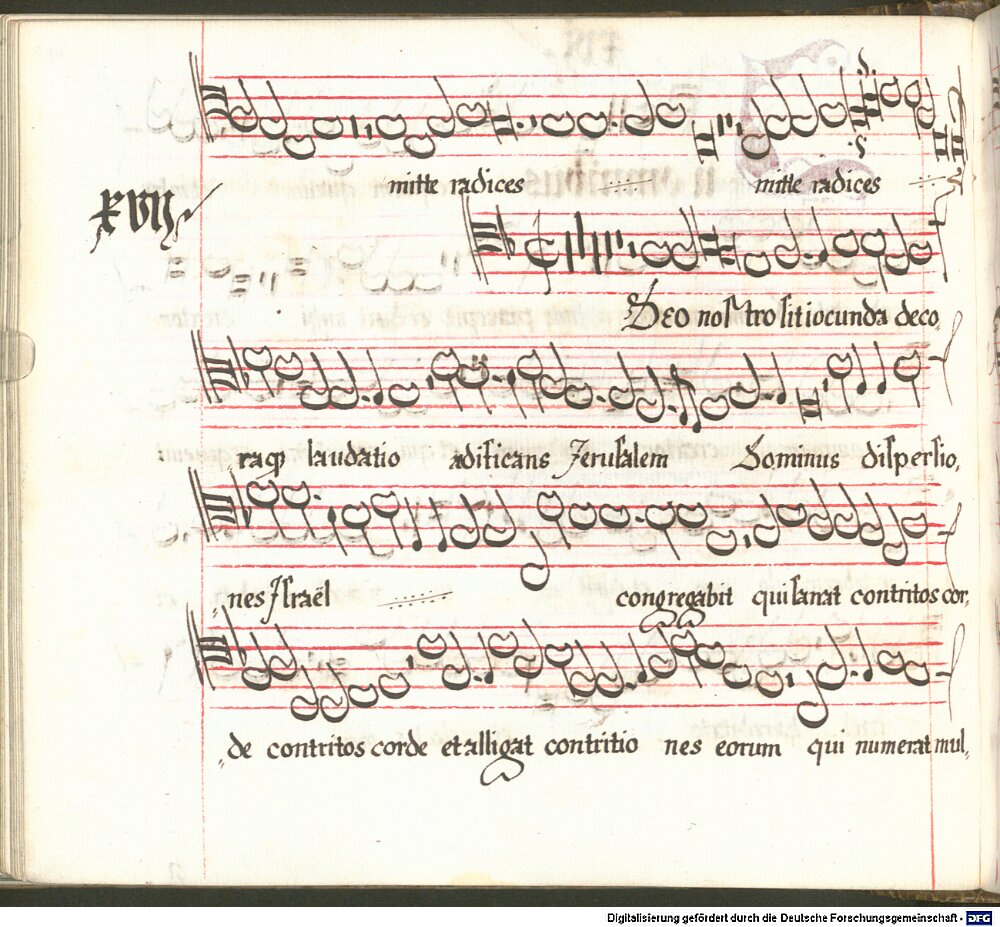 mitte radices mitte radices
XVII
Deo nostro sit iocunda deco,
raqꝫ laudatio ædificans Jerusalem Dominus dispersio,
nes Jsraël congregabit qui sanat contritos cor,
de contritos corde et alligat contritio nes eorum qui numerat mul,
Digitalisierung gefördert durch die Deutsche Forschungsgemeinschaft - DFG